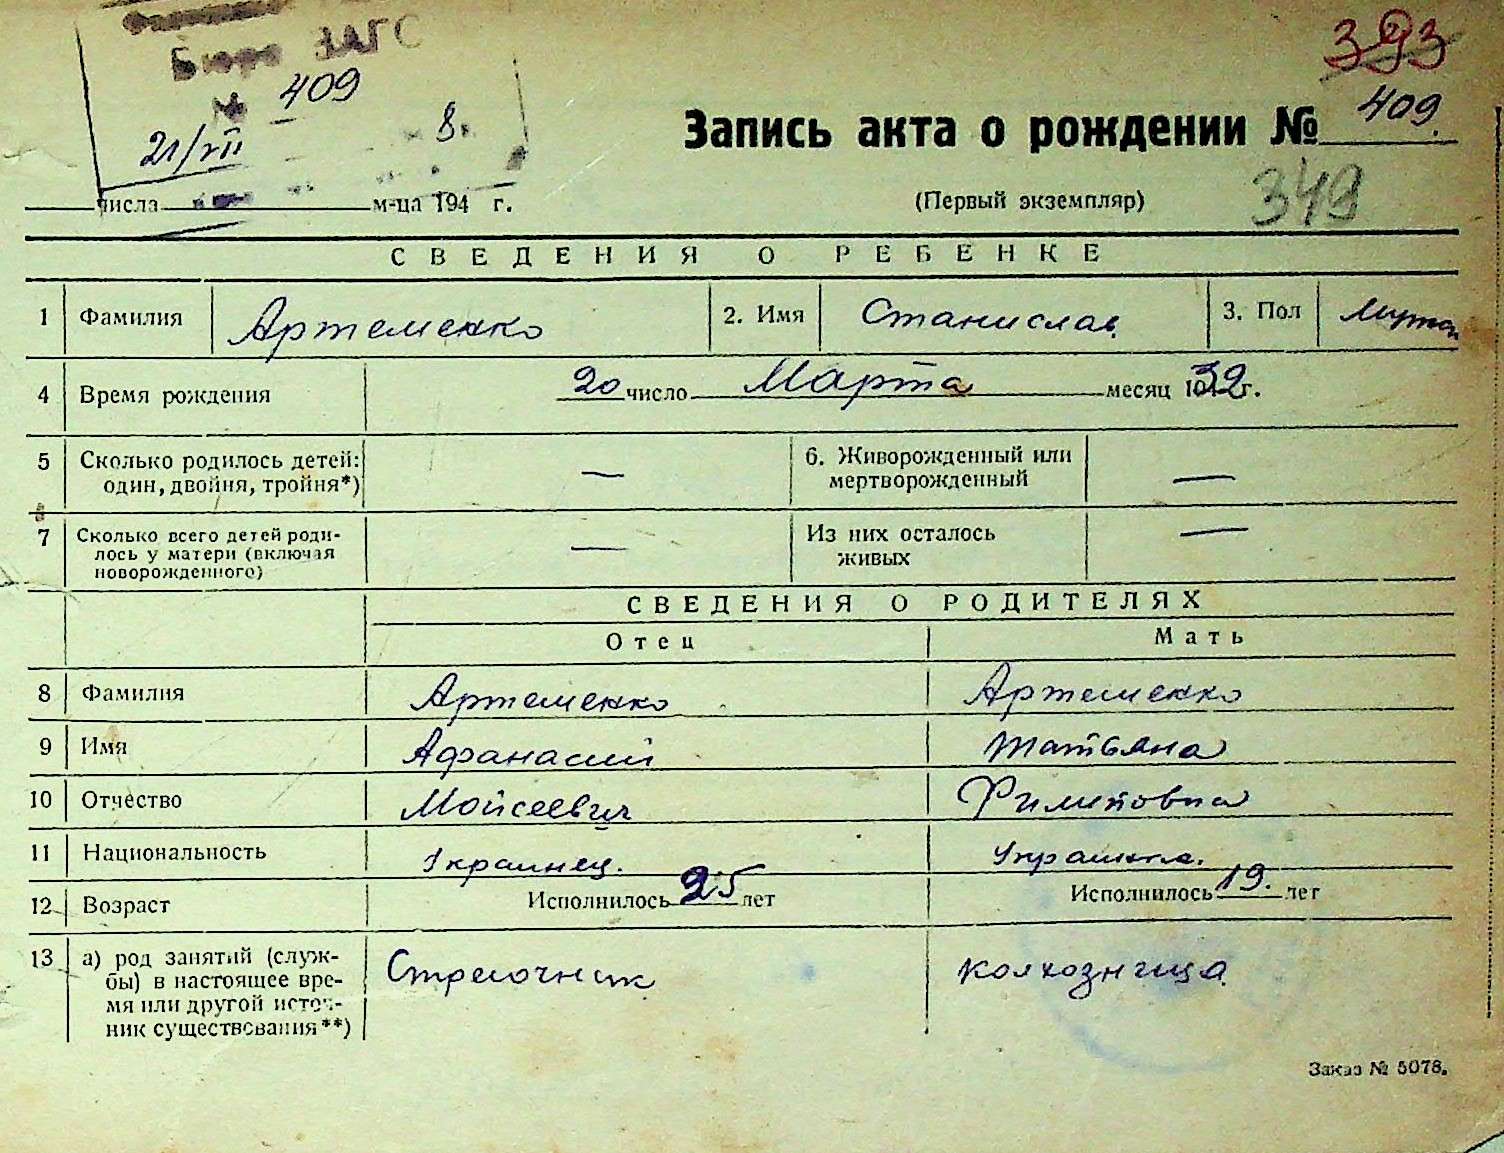 Бюро ЗАГС
№ 409
21/VII 8.
393
Запись акта о рождении № 409.
числа м-ца 194 г.
(Первый экземпляр)
349
СВЕДЕНИЯ О РЕБЕНКЕ
1 Фамилия Артеменко 2. Имя Станислав 3. Пол
4 Время рождения 20 число Марта месяц 1932 г.
5 Сколько родилось детей: — 6. Живорожденный или —
один, двойня, тройня*) мертворожденный
7 Сколько всего детей роди- — Из них осталось —
лось у матери (включая живых
новорожденного)
СВЕДЕНИЯ О РОДИТЕЛЯХ
Отец Мать
8 Фамилия Артеменко Артеменко
9 Имя Афанасий Татьяна
10 Отчество Мойсеевич Филиповна
11 Национальность Украинец. Украинка.
12 Возраст Исполнилось 25 лет Исполнилось 19. лет
13 а) род занятий (служ- Стрелочник колхозница
бы) в настоящее вре-
мя или другой источ-
ник существования**)
Заказ № 5078.